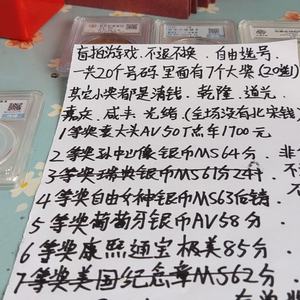 盲拍游戏.不退不换.自由选号
一共20个号码里面有7个大奖(20
其它小奖都是清钱.乾隆.道光
嘉庆.咸丰.光绪.(全场没有北宋钱)
1等奖袁大头AV50T 年1700元
2等奖孙中山像银币MS64分.非
3等奖瑞典银币MS61分2科.不
4等奖自由女神银币MS63
5等奖葡萄牙银币AV58分.
6等奖康熙通宝极美85分.
7等奖美国纪念章MS62分